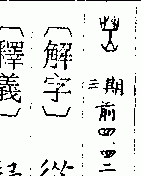 三期前四.四二
〔解字〕從
〔釋義〕